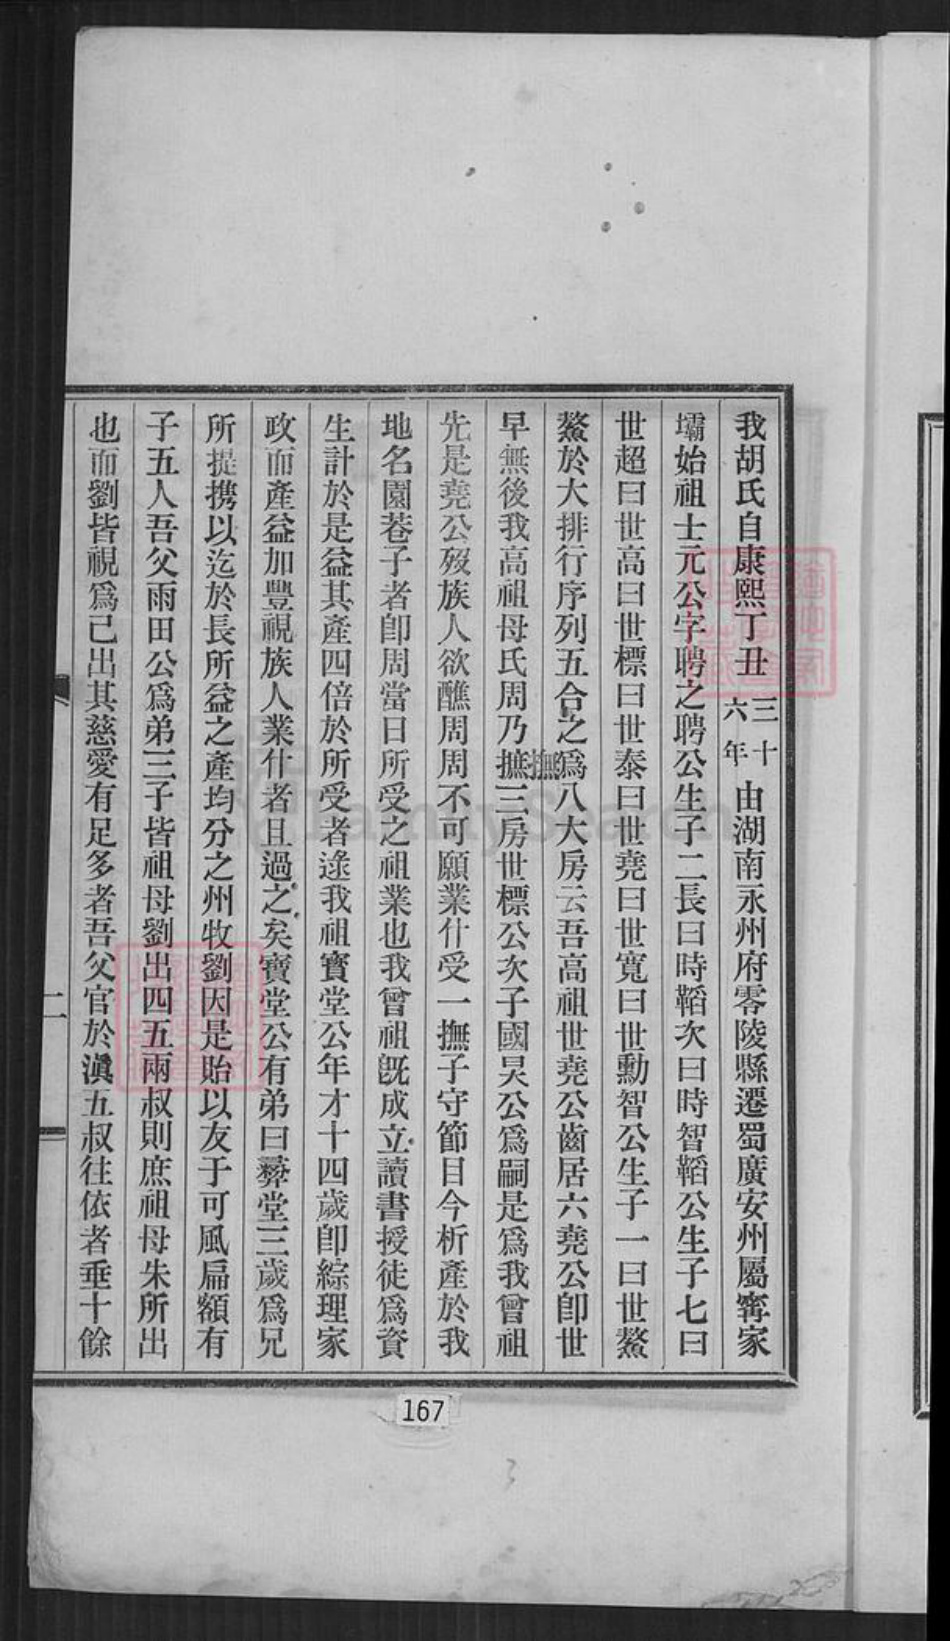 我胡氏自康熙丁丑三十六年由湖南永州府零陵縣遷蜀廣安州屬甯家
壩始祖士元公字聘之聘公生子二長曰時韜次曰時智韜公生子七曰
世超曰世高曰世標曰世泰曰世堯曰世寬曰世勳智公生子一曰世鰲
鰲於大排行序列五合之爲八大房云吾高祖世堯公齒居六堯公卽世
早無後我高祖母氏周乃撫三房世標公次子國昊公爲嗣是爲我曾祖
撫
先是堯公歿族人欲醮周周不可願業什受一撫子守節日今析產於我
地名園巷子者卽周當日所受之祖業也我曾祖旣成立讀書授徒爲資
生計於是益其產四倍於所受者逮我祖寶堂公年才十四歲卽綜理家
政而產益加豐視族人業什者且過之矣寶堂公有弟曰彝堂三歲爲兄
所提携以迄於長所益之產均分之州牧劉因是貽以友于可風扁額有
子五人吾父雨田公爲弟三子皆祖母劉出四五兩叔則庶祖母朱所出
也而劉皆視爲己出其慈愛有足多者吾父官於滇五叔往依者垂十餘
二
167
3
FamilySearch